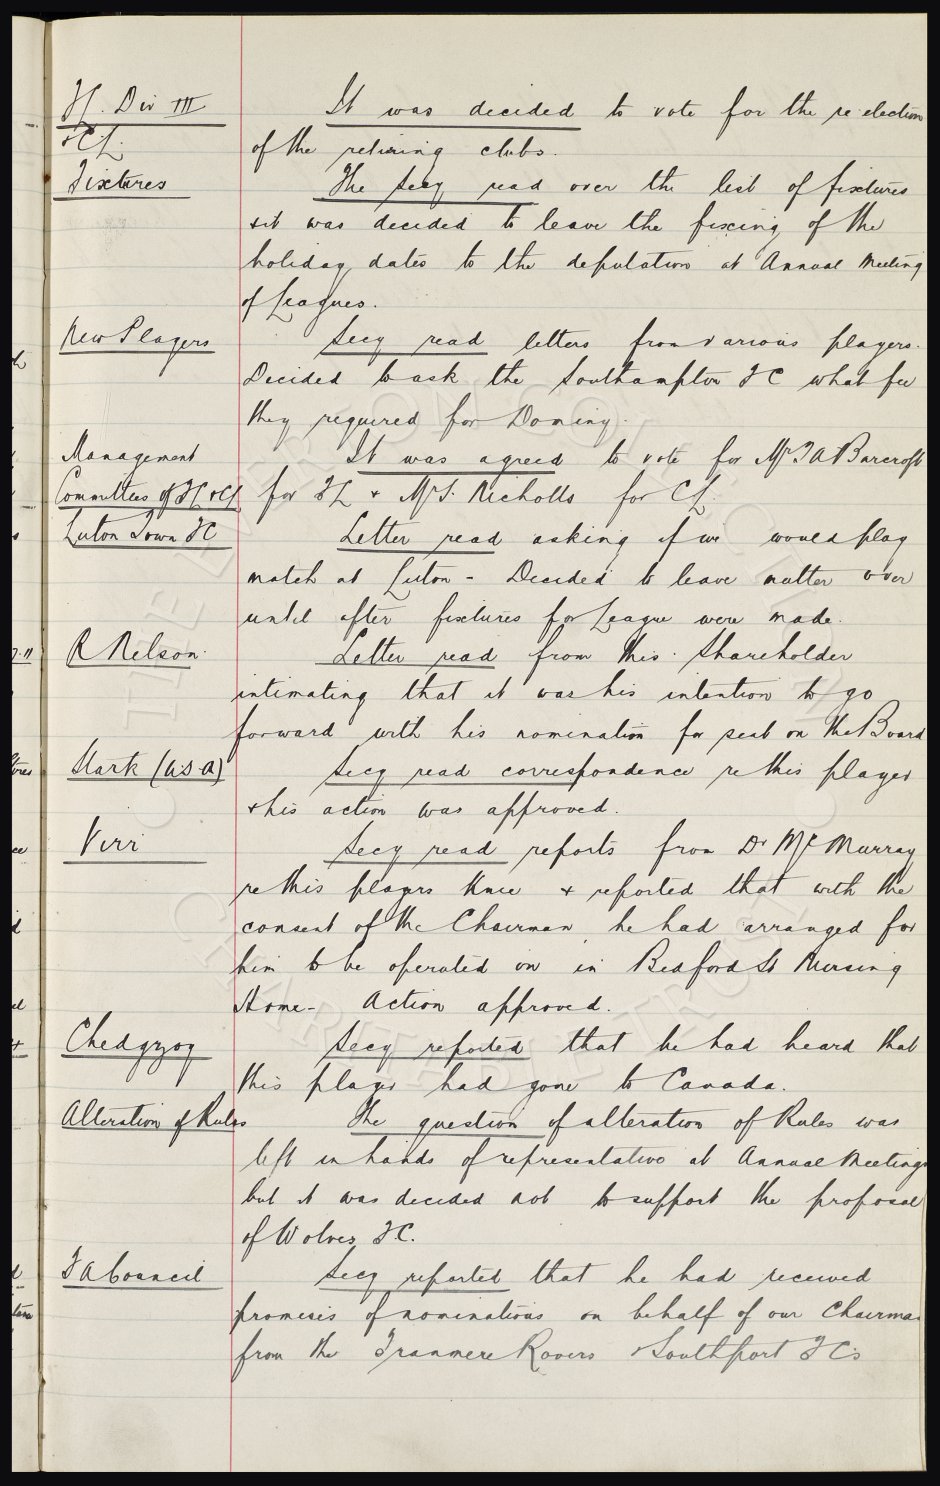 FL. Div III It was decided to vote for the re election
& C.L. of the retiring clubs.
Fixtures The Secy read over the list of fixtures
& it was decided to leave the fixing of the
holiday dates to the deputation at Annual Meeting
of Leagues.
New Players Secy read letters from various players.
Decided to ask the Southampton FC what fee
they required for Dominy.
Management It was agreed to vote for Mr T A Barcroft
Committees of FL & CL for FL & Mr S. Nicholls for CL.
Luton Town FC Letter read asking if we would play
match at Luton - Decided to leave matter over
until after fixtures for League were made.
R Nelson. Letter read from this Shareholder
intimating that it was his intention to go
forward with his nomination for seat on the Board
Stark (U.S.A) Secy read correspondence re this player
& his action was approved.
Virr Secy read reports from Dr McMurray
re this players knee & reported that with the
consent of the Chairman he had arranged for
him to be operated on in Bedford St Nursing
Home - Action approved.
Chedgzoy Secy reported that he had heard that
this player had gone to Canada.
Alteration of Rules The question of alteration of Rules was
left in hands of representative at Annual Meetings
but it was decided not to support the proposal
of Wolves FC.
F A Council Secy reported that he had received
promises of nominations on behalf of our Chairman
from the Tranmere Rovers & Southport FC's